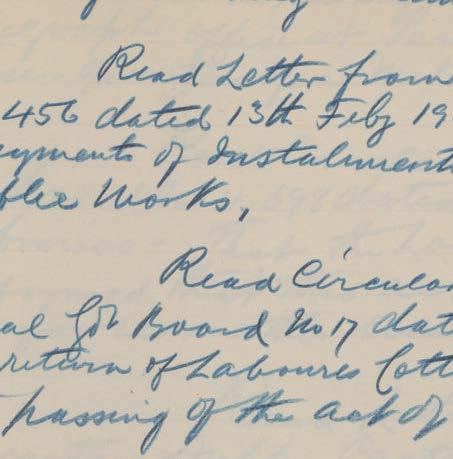 Read Letter from
456 dated 13th Feby 19
yments of Instalments
blic Works,
Read Circular
al Govt Board No 17 dat
return of Labourers Cott
passing of the act of